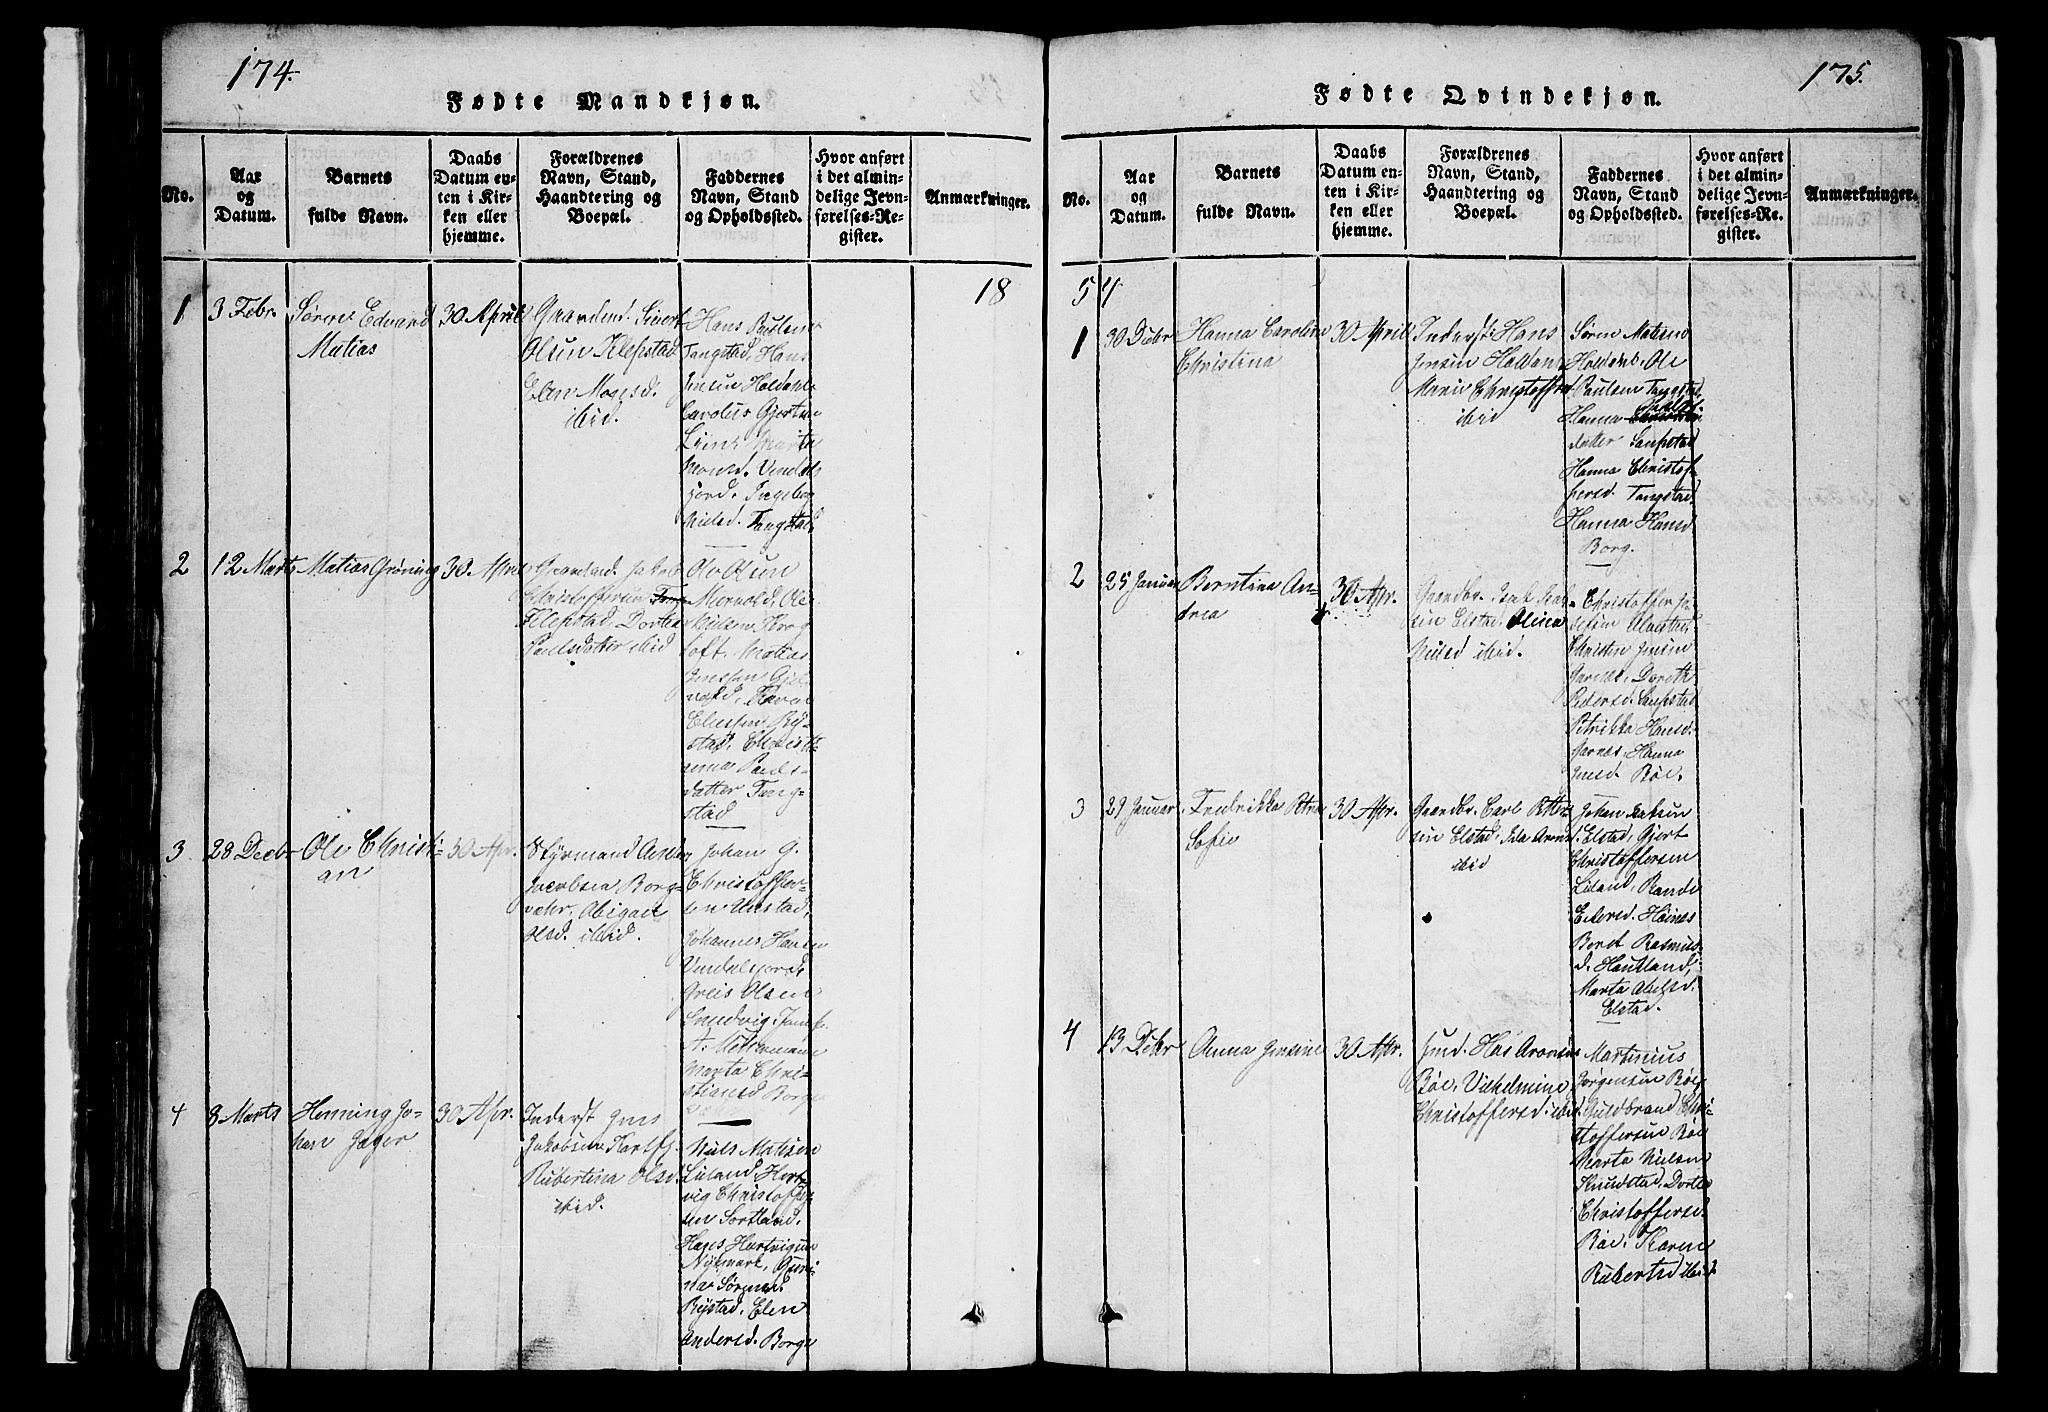 174.
Fødte Mandkjøn.
No.
Aar
og
Datum.
Barnets
fulde Navn.
Daabs
Datum en-
ten i Kir-
ken eller
hjemme.
Forældrenes
Navn, Stand,
Haandtering og
Boepæl.
Faddernes
Navn, Stand
og Opholdssted.
Hvor anført
i det almin-
delige Jevn-
førelses-Re-
gister.
Anmærkninger.
18
1
3 Febr.
Søren Edvard
Matias
30 April
Gaardmd. Sivert
Olsen Klepstad
Elen Mogesd.
ibid.
Hans Paulsen
Tangstad, Hans
Jensen Holdahl
Carolus Gjertsen
Marta
Monsd. Vendals
jord. Ingeborg
Nilsd. Tangstad
2
12 Marts
Matias Grøning
30 Apr.
Jakob
Christoffersen
Klepstad, Dortea
Paulsdatter ibid
Ole Olsen
Mernold, Ole
Nielsen Krog
toft. Matias
Jensen
Elussen Ry-
stad, Christi-
anna Pauls-
datter Tang-
stad
3
28 Decbr
Ole Christi-
an
30 Apr.
Styrmand
Jacobsen Borg-
vær, Abigael
Olsd. ibid.
Johan G.
Christoffer-
sen Unstad,
Johannes Hansen
Vendalsjord,
Greis Olsen
Sundvig,
Marta Chri-
stiansd Borge
4
8 Marts
Henning Jo-
han Jager
30 Apr.
Inderst Jens
Jakobsen Kartfj.
Rubertina Olsd.
ibid.
Nils Matisen
Liland, Hart-
vig Christoffer-
sen Sortland.
Hans Hartvigsen
Nymark, Guri-
na Sørensd.
Rystad, Elen
Andersd. Borge
175.
Fødte Qvindekjøn.
No.
Aar
og
Datum.
Barnets
fulde Navn.
Daabs
Datum en-
ten i Kir-
ken eller
hjemme.
Forældrenes
Navn, Stand,
Haandtering og
Boepæl.
Faddernes
Navn, Stand
og Opholdssted.
Hvor anført
i det almin-
delige Jevn-
førelses-Re-
gister.
Anmærkninger.
54
1
30 Decbr
Hanna Caroline
Christina
30 April
Inderst: Hans
Jensen Holdahl
Marie Christoffersd
ibid
Søren Matisen
Holdahl, Ole
Paulsen Tangstad,
Hanna
datter Saupstad
Hanna Christof-
fersd. Tangstad
Hanna Hansd
Borg.
2
25 Januar
Berntina An-
drea
30 Apr.
Gaardbr. Isak Isak-
sen Elstad, Olina
Nilsd ibid.
Christoffer Jo-
sefsen Alvestad,
Christen Jensen
Doreth
Pedersd. Saupstad
Petrikka Hansd.
Jarnes, Hanna
Jensd. Böe.
3
29 Januar
Fredrikka Petra
Sofie
30 Apr.
Gaardbr. Carl Peter-
sen Elstad, Ida Arond.
ibid
Johan Isaksen
Elstad, Gjert
Christoffersen
Liland, Randi
Eilersd. Höinas
Berdt Rasmus-
d. Haukland,
Marta Abelsd.
Elstad.
4
13 Debr
Anna Jensine
30 Apr.
Hans Aronsen
Böe, Vilhelmine
Christoffersd. ibid.
Martinius
Jørgensen Böe
Guldbrand Chri-
stoffersen Böe
Marta Nielsen
Knudstad, Dorte
Christoffersd.
Böe, Karen
Rubertsd ibid.